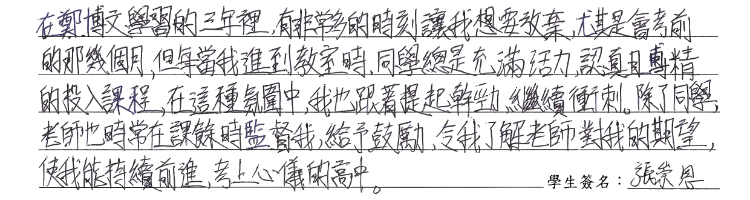 在鄭博文學習的三年裡,有非常多的時刻讓我想要放棄,尤其是會考前
的那幾個月,但每當我進到教室時,同學總是充滿活力,認真且專精
的投入課程,在這種氛圍中,我也跟著提起幹勁,繼續衝刺。除了同學,
老師也時常在課餘時監督我,給予鼓勵,令我了解老師對我的期望,
使我能持續前進,考上心儀的高中。
學生簽名:張崇恩